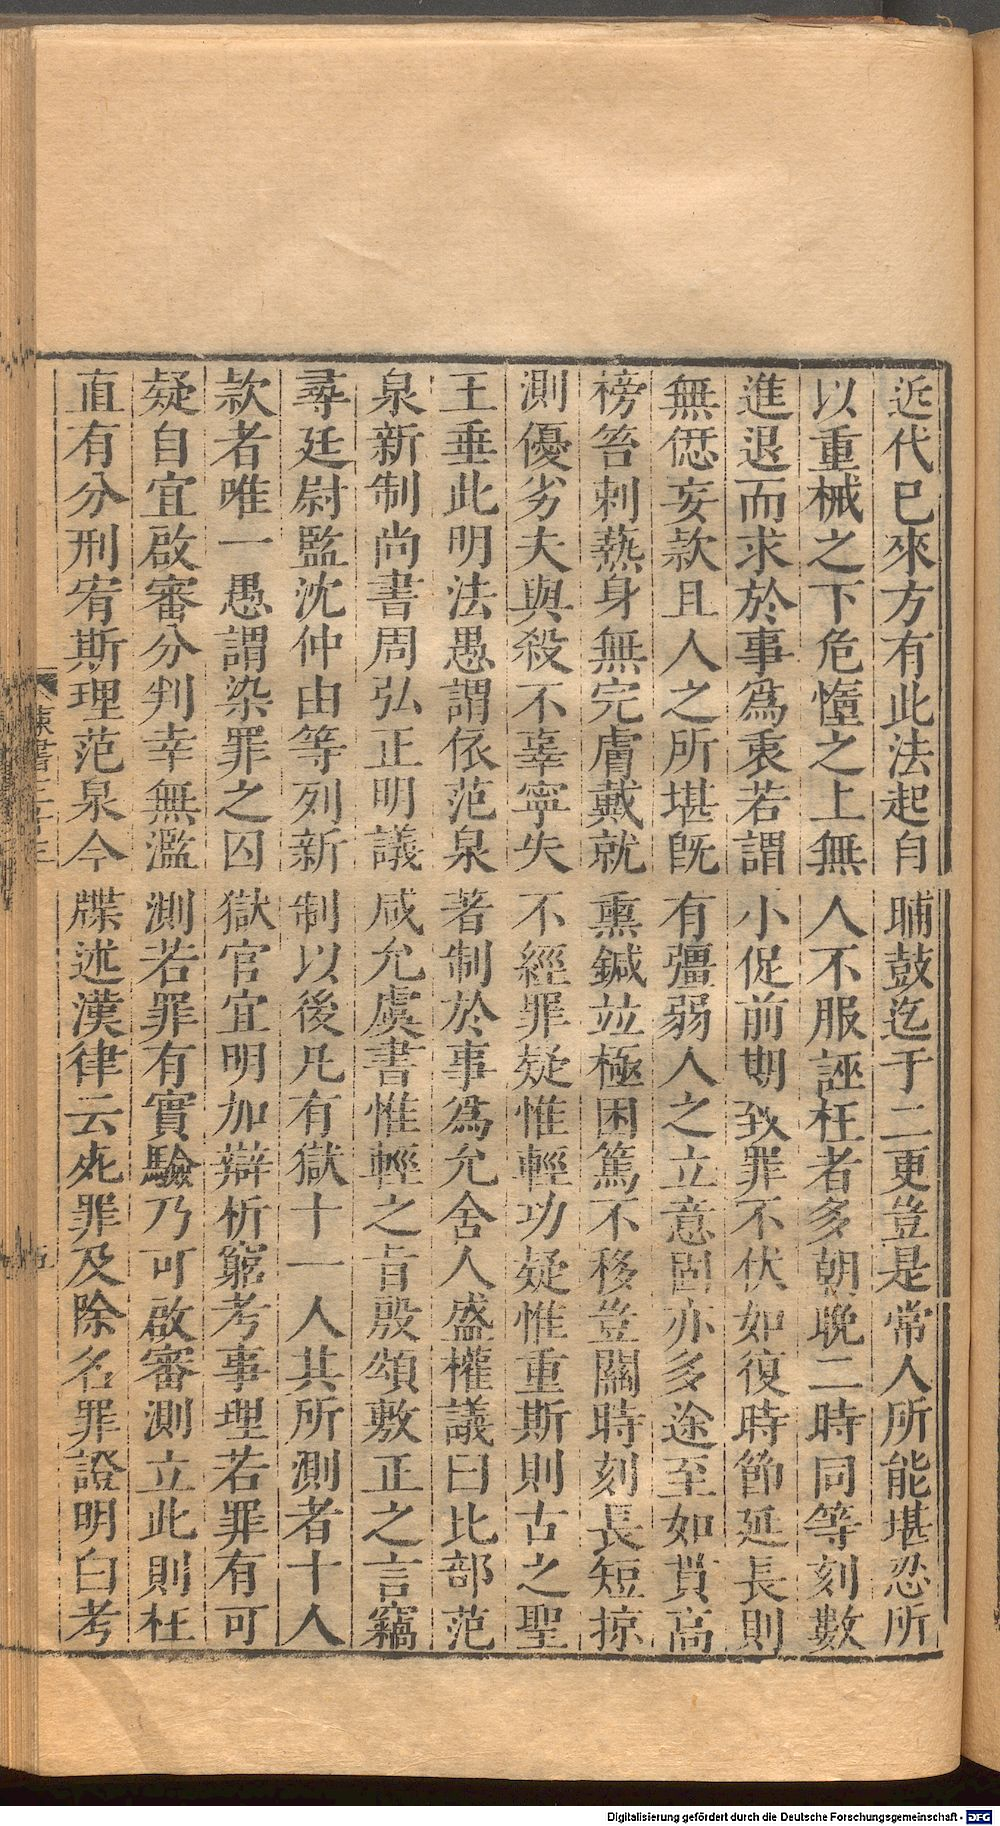 近代巳來方有此法起自晡鼓迄于二更豈是常人所能堪忍所
以重械之下危憻之上無人不服誣枉者多朝晚二時同等刻數
進退而求於事爲衷若謂小促前期致罪不伏如復時節延長則
無愆妄款且人之所堪旣有彊弱人之立意固亦多途至如貫高
榜笞刺爇身無完膚戴就熏鍼竝極困篤不移豈關時刻長短掠
測優劣夫與殺不辜寧失不經罪疑惟輕功疑惟重斯則古之聖
王垂此明法愚謂依范泉著制於事爲允舍人盛權議曰比部范
泉新制尚書周弘正明議咸允虞書惟輕之旨殷頌敷正之言竊
尋廷尉監沈仲由等列新制以後凡有獄十一人其所測者十人
款者唯一愚謂染罪之囚獄官宜明加辯析窮考事理若罪有可
疑自宜啟審分判幸無濫測若罪有實驗乃可啟審測立此則枉
直有分刑宥斯理范泉今牒述漢律云死罪及除名罪證明白考
陳書三十三
五
Digitalisierung gefördert durch die Deutsche Forschungsgemeinschaft - DFG